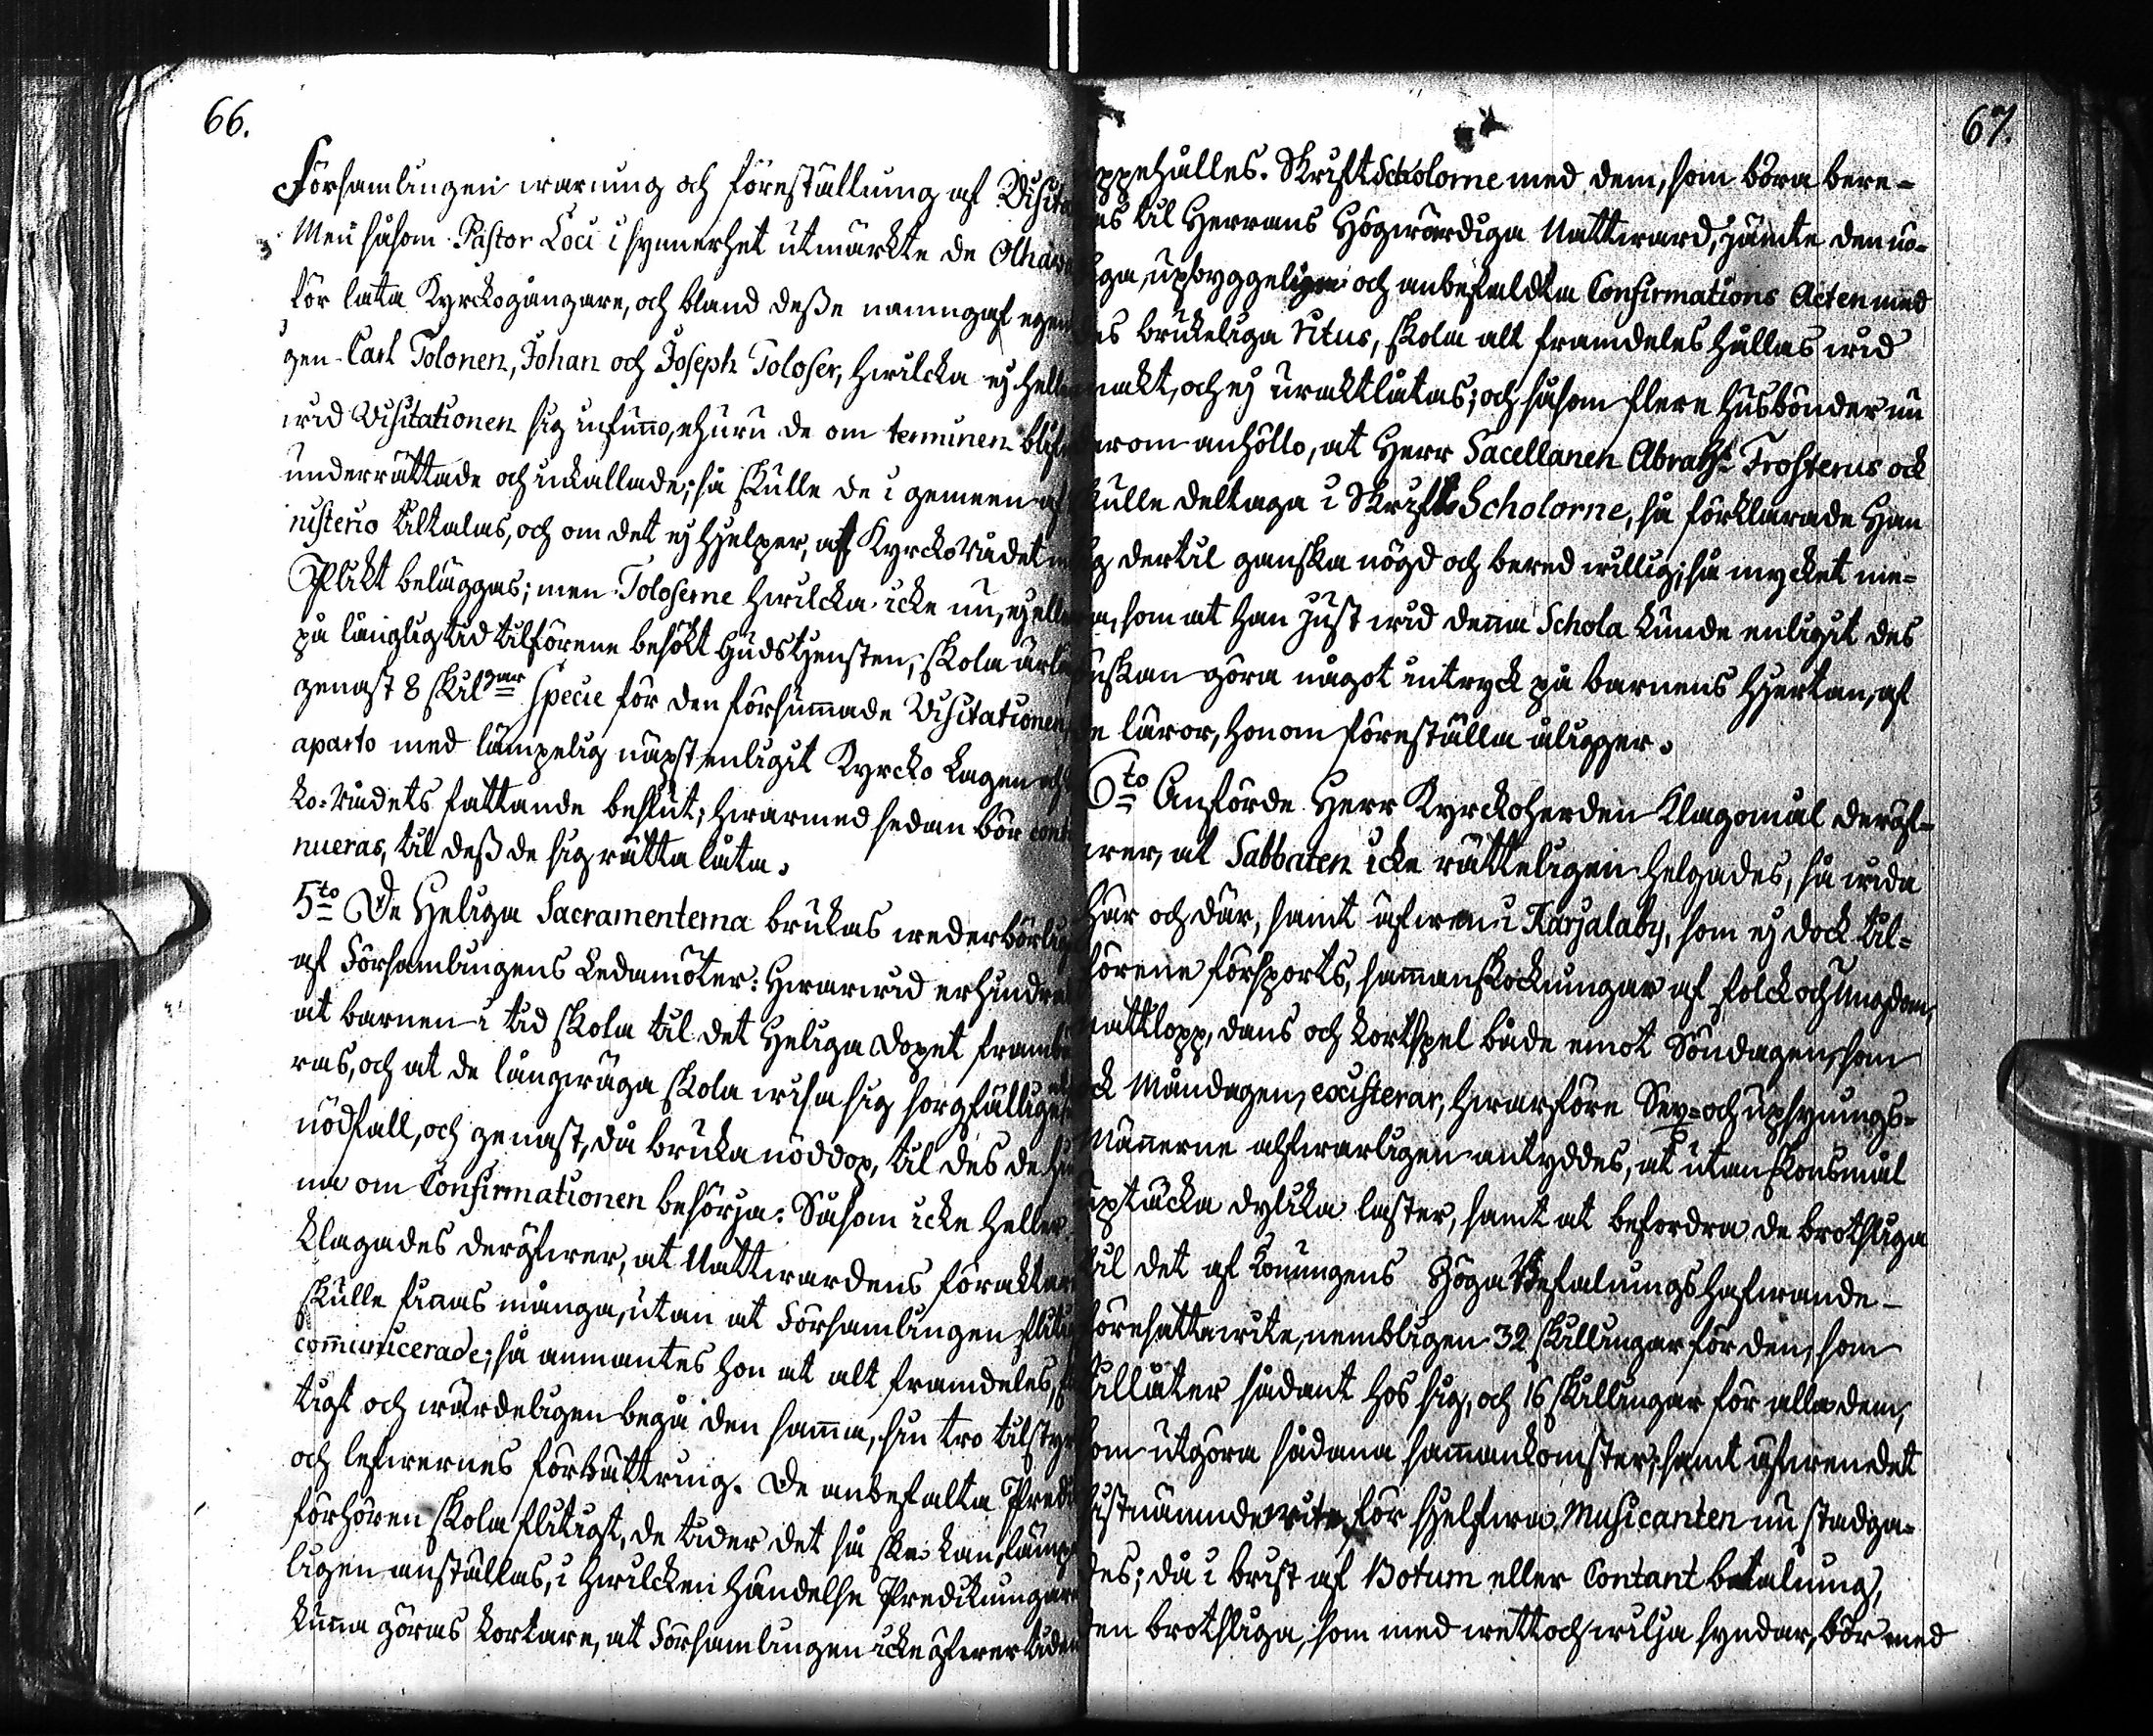 66.
Församlingen warning och föreställning af Visita
Men såsom Pastor Loci i synnerhet utmärkte de Olhava
för lata Kyrckogångare, och bland desse namngaf egen
gen Carl Tolonen, Johan och Joseph Toloser, hwilcka ej heller
wid Visitationen sig infunno, ehuru de om terminen blifw
underrättade och inkallade; så skulle de i gemeen af
nisterio tiltalas, och om det ej hjelper, af Kyrcko Rådet m
Plikt beläggas; men Toloserne hwilcka icke nu, ej eller
på långlig tid tilförene besökt Gudstjensten, skola ärl
genast 8 skilgar Specie för den försummade Visitationen,
aparto med lämpelig näpst enligit Kyrcko Lagen och
ko-Rådets fattande beslut; hwarmed sedan bör conti
nueras, til dess de sig rätta låta.
5to De Heliga Sacramenterna brukas wederbörlig
af Församlingens Ledamöter: Hwarwid erhindra
at barnen i tid skola til det Heliga Dopet frambä
ras, och at de långwäga skola wisa sig sorgfällige
nödfall, och genast, då bruka nöddop, til des de hin
na om Confirmationen besörja: Såsom icke heller
klagades deröfwer, at Nattwardens föraktare
skulle finnas många, utan at Församlingen flitig
communicerade; så anmantes hon at alt framdeles,
tigt och wärdeligen begå den samma, sin tro til styr
och lefwernes förbättring. De anbefalta Predik
förhören skola flitigt, de tider det så ske kan, lämp
ligen anställas, i hwilcken händelse Predikningar
kunna göras kortare, at Församlingen icke öfwer tiden
67.
uppehålles. Skrift Scholorne med dem, som böra bere-
das til Herrans Högwördiga Nattward, jämte den nö-
diga, upbyggeliga och anbefaldta Confirmations Acten med
des brukeliga ritus, skola alt framdeles hållas wid
makt, och ej uraktlåtas; och såsom flere husbönder nu
derom anhöllo, at Herr Sacellanen Abrah: Frosterus ock
skulle deltaga i Skrifte Scholorne, så förklarade Han
sig dertil ganska nögd och beredwillig; så mycket me-
ra, som at han just wid denna Schola kunde enligit des
önskan göra något intryck på barnens hjertan, af
de läror, honom föreställa åligger.
6to Anförde Herr Kyrckoherden Klagomål deröf-
wer, at Sabbaten icke rätteligen helgades, så wida
här och där, samt äfwen i Karjalaby, som ej dock til-
förene försports, sammanskockningar af folck och Ungdom,
nattlopp, dans och kortspel både emot Söndagen, som
ock Måndagen, existerar, hwarföre Sex- och upsynings-
Männerne alfwarligen antyddes, at utan skonsmål
uptäcka dylika laster, samt at befordra de brotsliga
til det af Konungens Höga Befalningshafwande
föresatte wite, nembligen 32 skillingar för den, som
tillåter sådant hos sig, och 16 skillingar för alla dem,
som utgöra sådana sammankomster, samt äfwen det
sistnämnde wite för sjelfwa Musicanten nu stadga-
des; då i brist af Botum eller Contant betalning,
den brotsliga, som med wett och wilja syndar, bör med